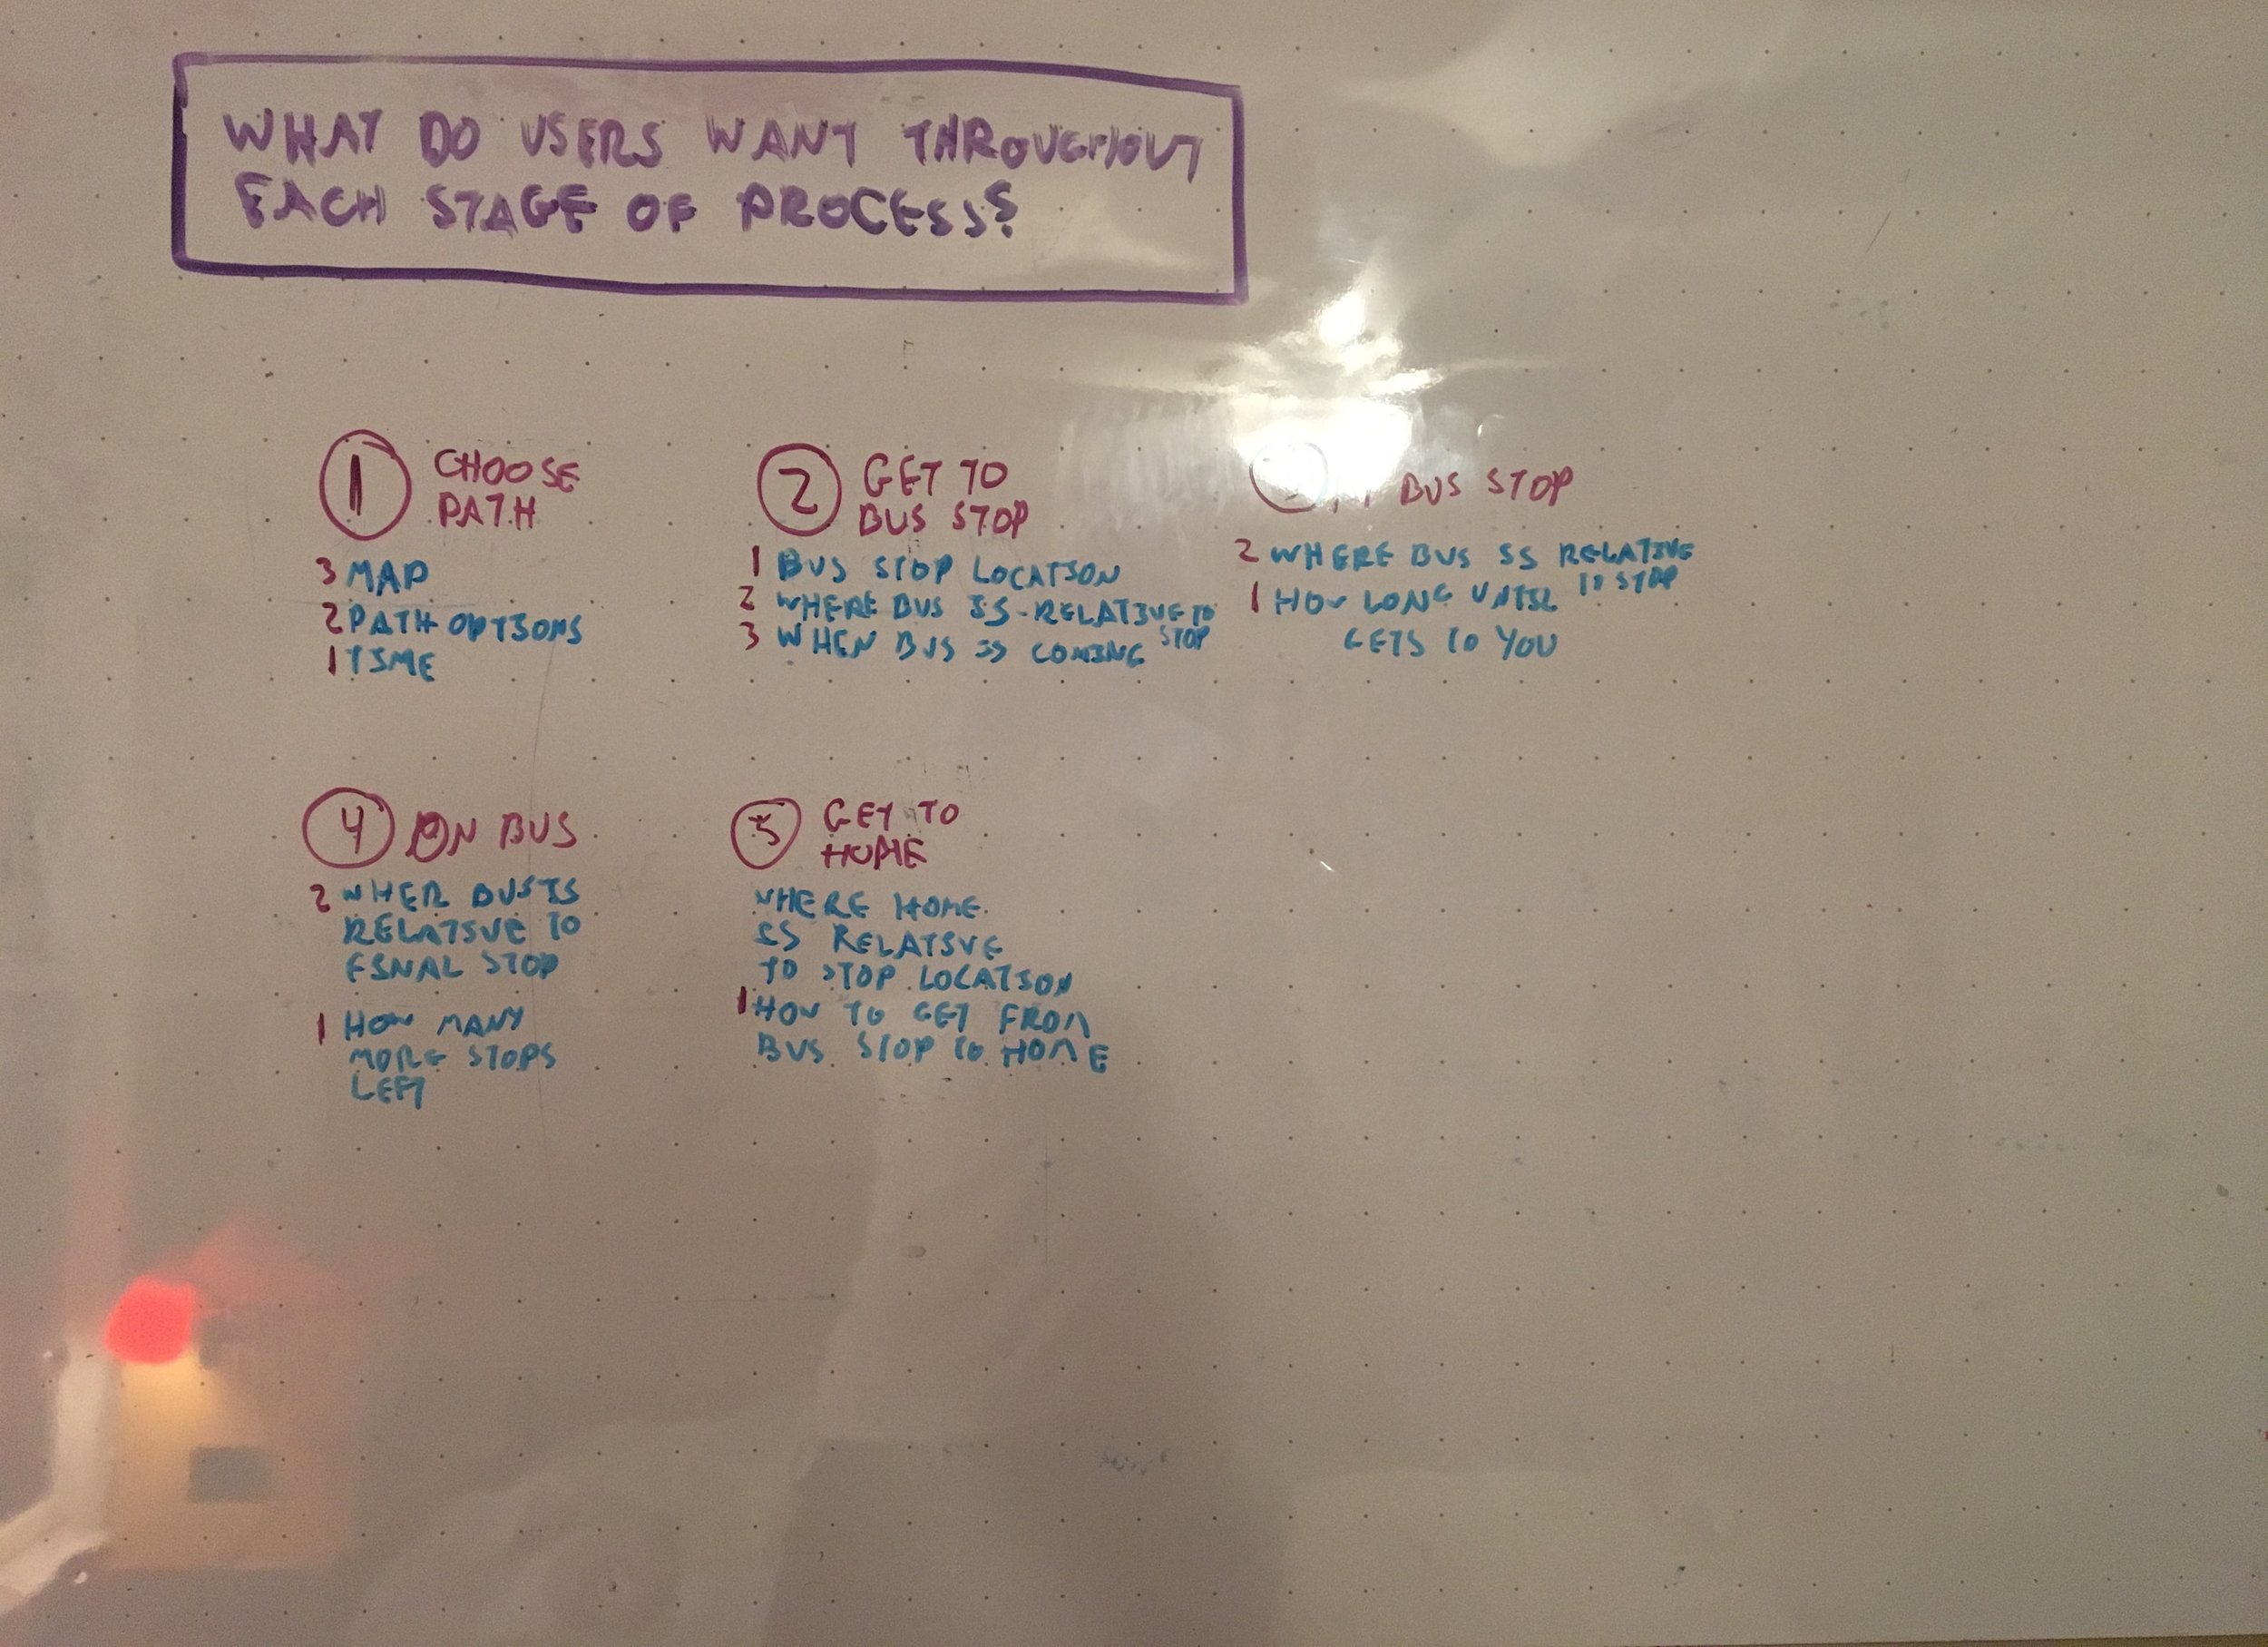 WHAT DO USERS WANT THROUGHOUT
EACH STAGE OF PROCESS?
1 CHOOSE
PATH
3 MAP
2 PATH OPTIONS
1 TIME
2 GET TO
BUS STOP
1 BUS STOP LOCATION
2 WHERE BUS IS RELATIVE TO
STOP
3 WHEN BUS IS COMING
BUS STOP
2 WHERE BUS IS RELATIVE
TO STOP
1 HOW LONG UNTIL
GETS TO YOU
4 ON BUS
2 WHER BUS IS
RELATIVE TO
FINAL STOP
1 HOW MANY
MORE STOPS
LEFT
5 GET TO
HOME
WHERE HOME
IS RELATIVE
TO STOP LOCATION
1 HOW TO GET FROM
BUS STOP TO HOME